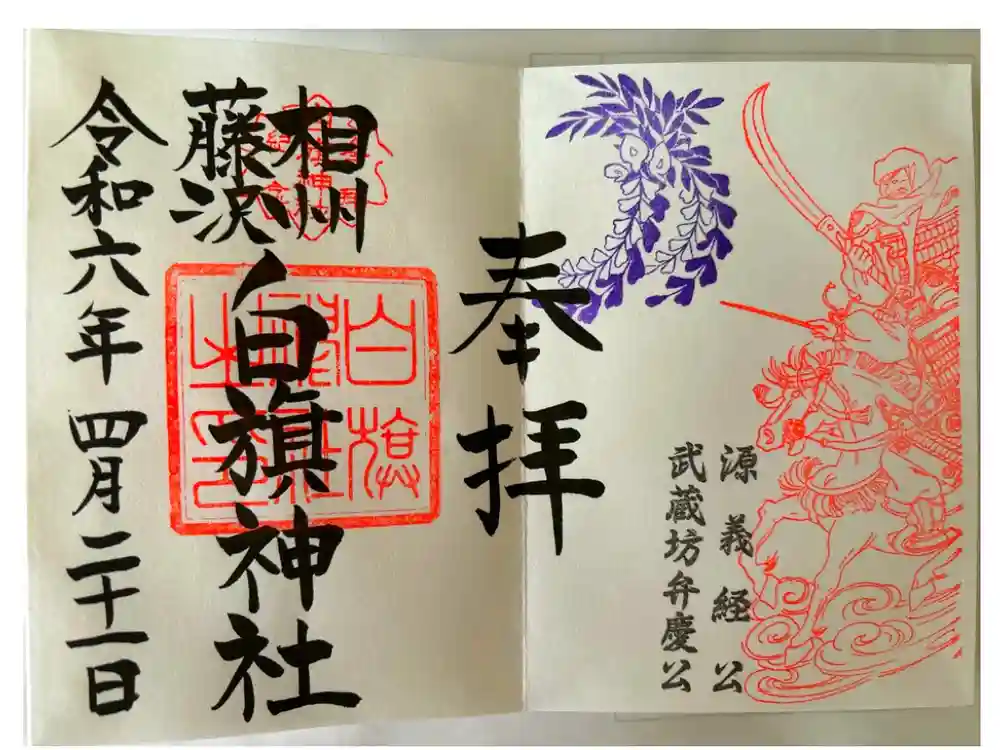 源義経公
武蔵坊弁慶公
奉拝
相州
藤沢ノ
白旗神社
令和六年四月二十一日
白旗
神社
之印